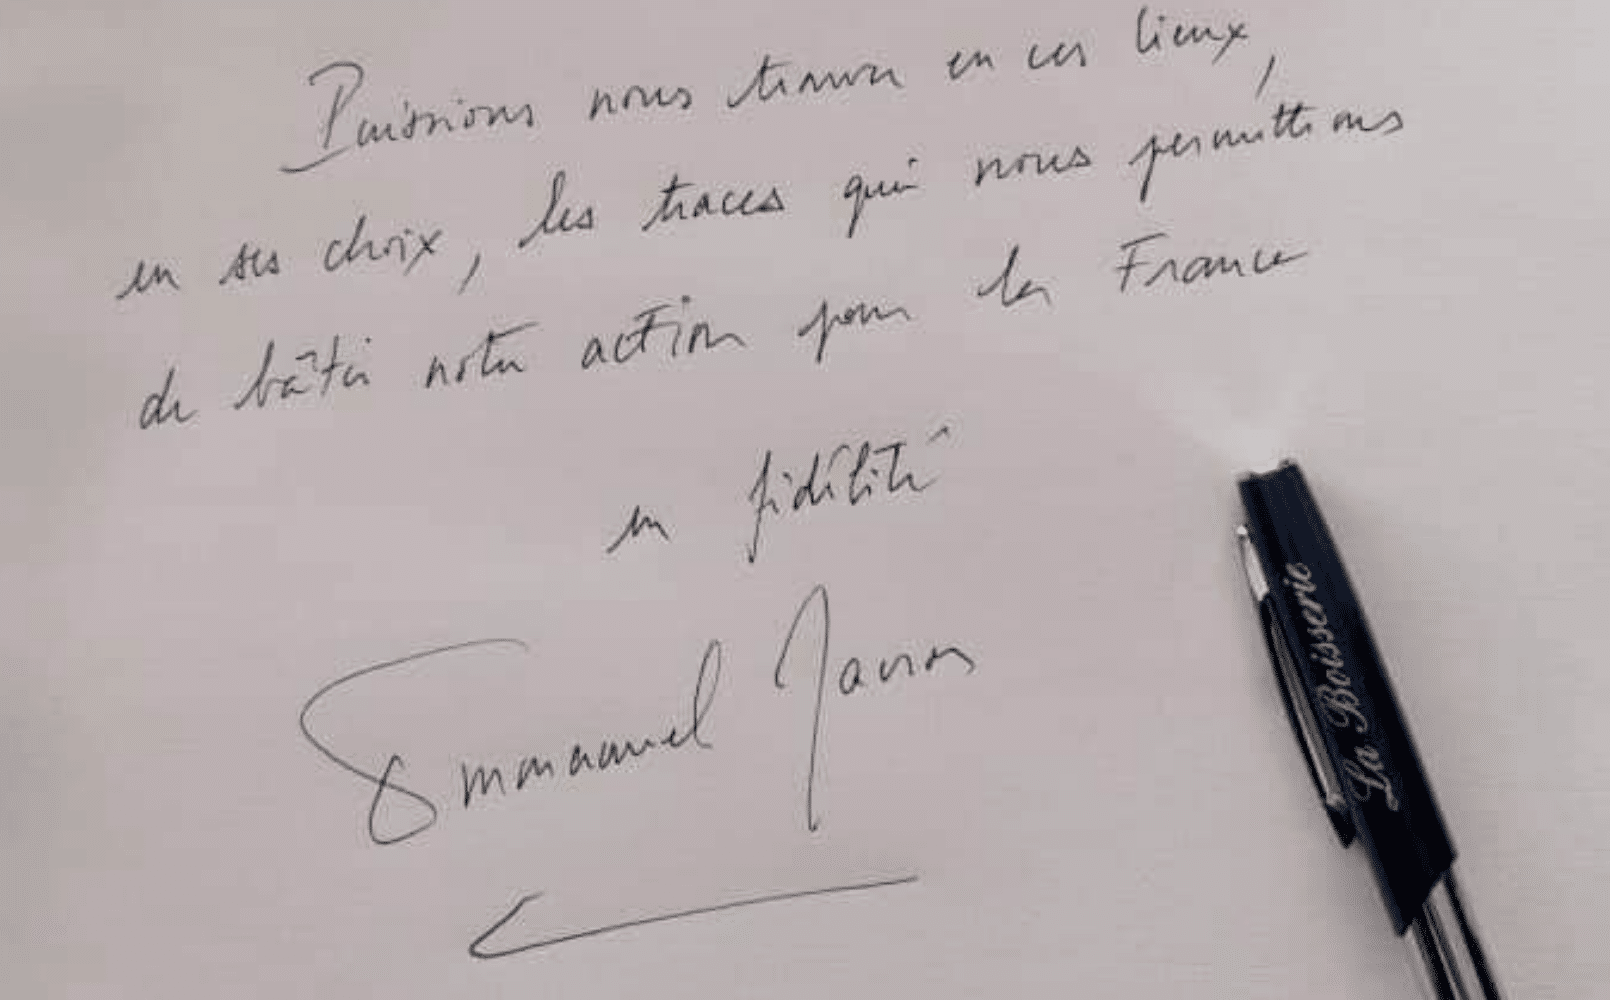 Puissions nous trouver en ces lieux,
en ses choix, les traces qui nous permettrons
de bâtir notre action pour la France
en fidélité
Emmanuel Macron
La Boisserie